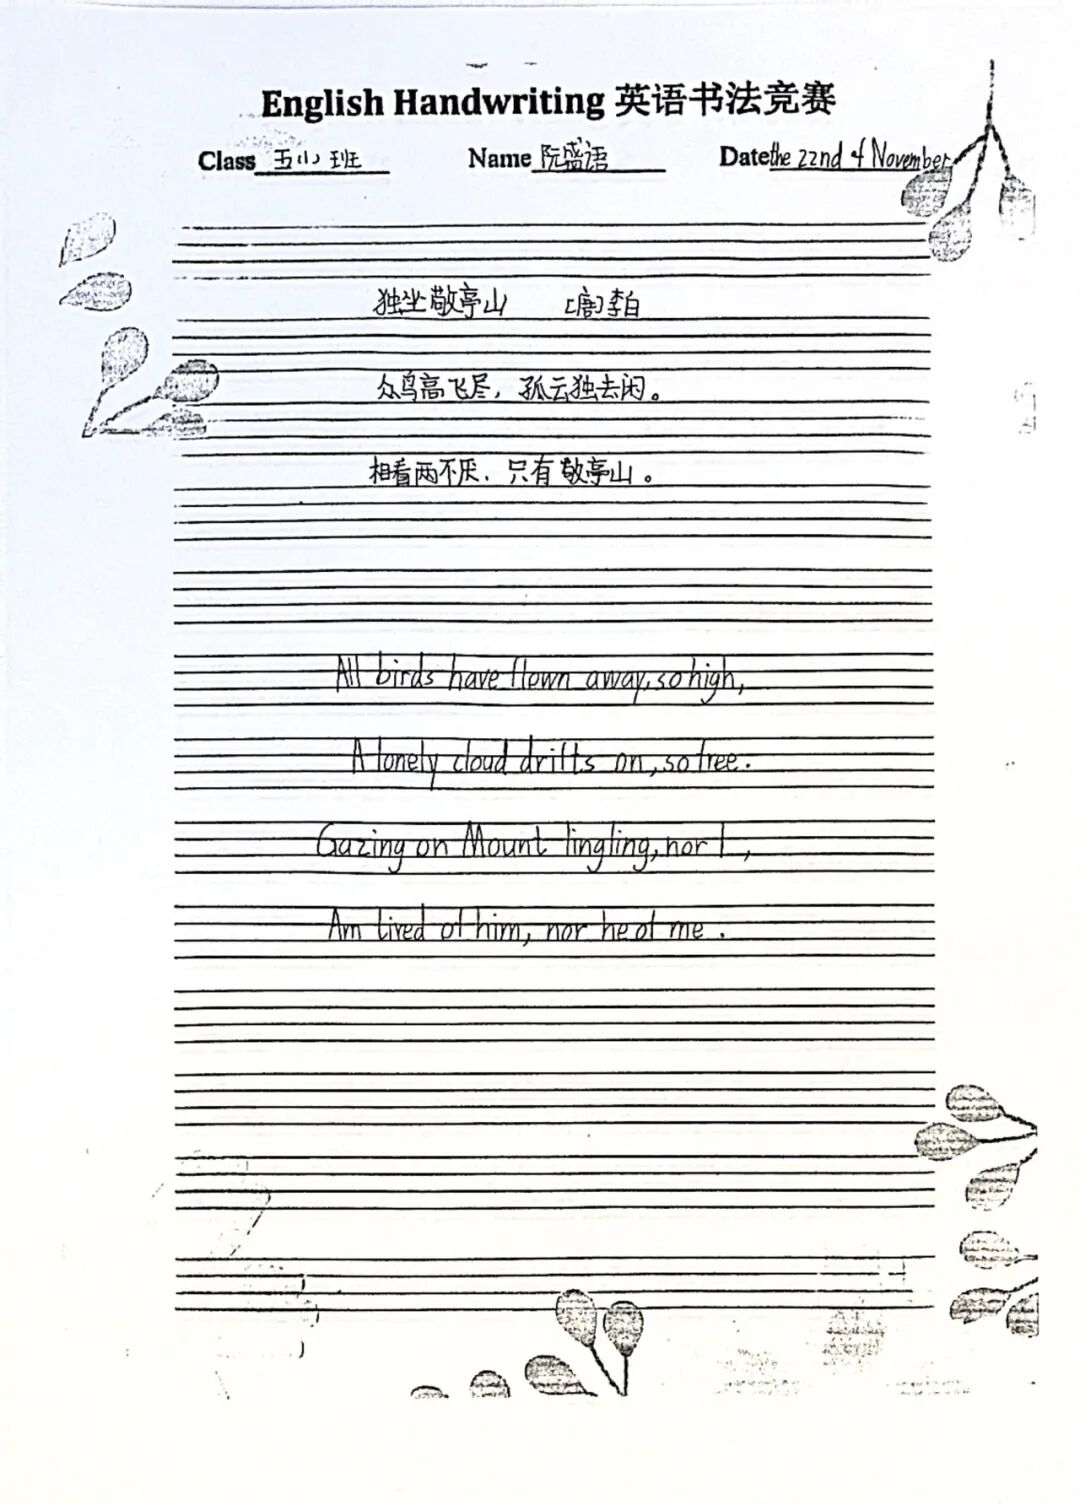 English Handwriting 英语书法竞赛
Class 五(1)班 Name 阮盛语 Date the 22nd of November
独坐敬亭山 [唐]李白
众鸟高飞尽，孤云独去闲。
相看两不厌，只有敬亭山。
All birds have flown away, so high,
A lonely cloud drifts on, so free.
Gazing on Mount Jingting, nor I,
Am tired of him, nor he of me.